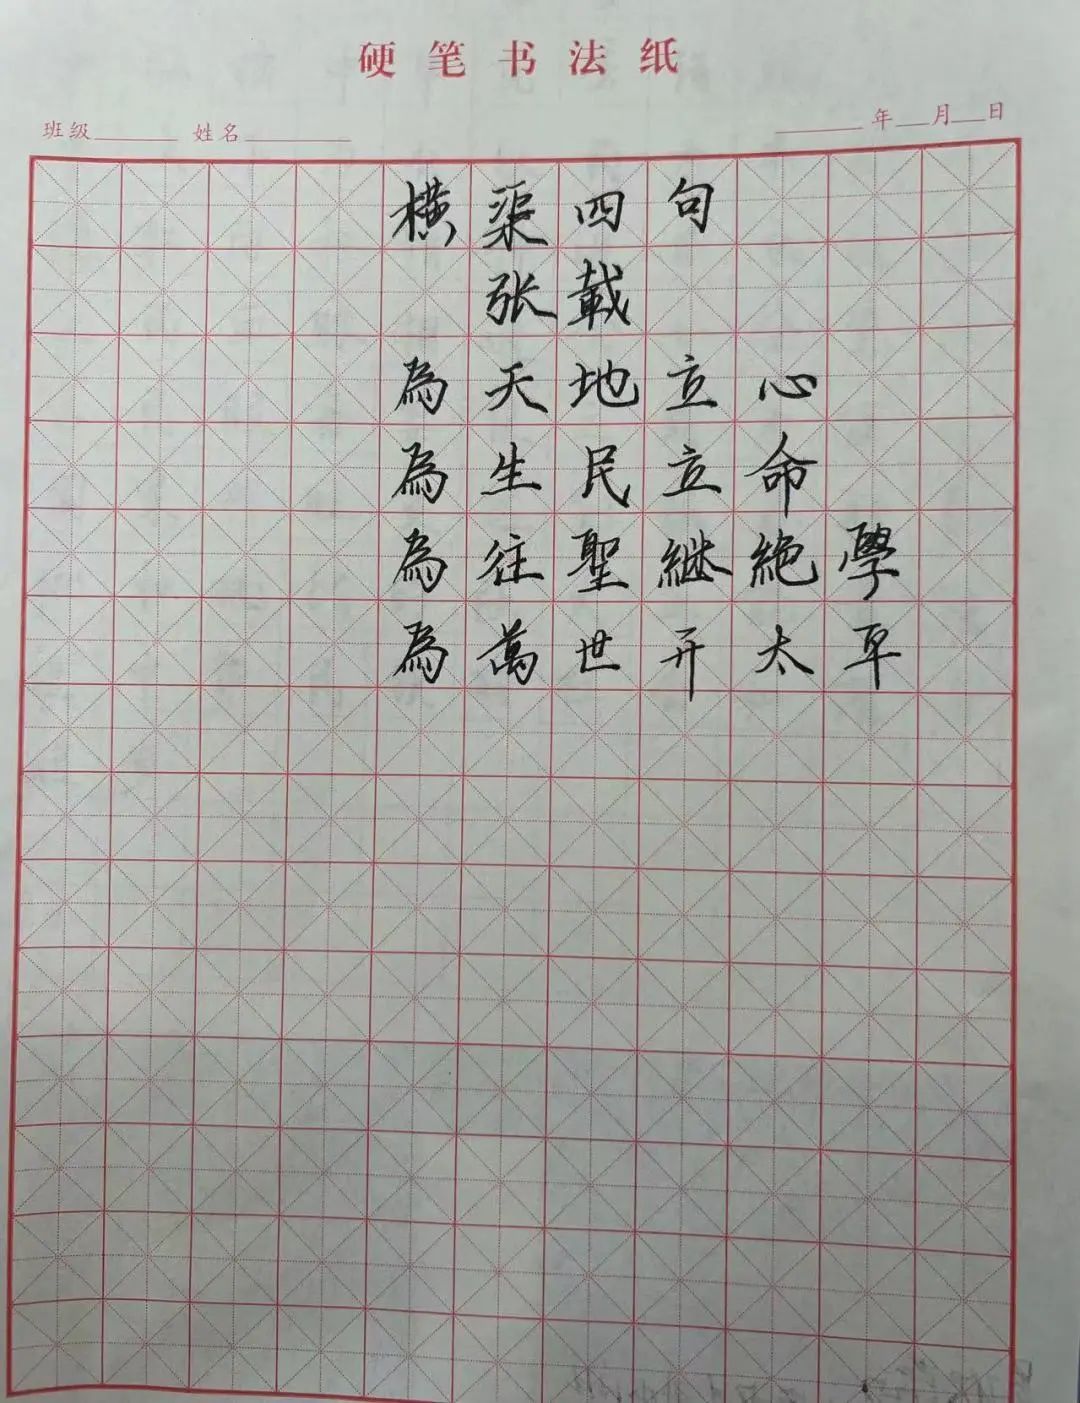 硬笔书法纸
班级 姓名 年 月 日
横渠四句
张載
為天地立心
為生民立命
為往聖継絶學
為萬世开太平